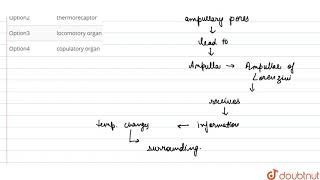 Option2 thermorecaptor
Option3 locomotory organ
Option4 copulatory organ
ampullary pores
lead to
Ampulla → Ampullae of
Lorenzini
receives
temp. changes ← Information
surrounding.
doubtnut